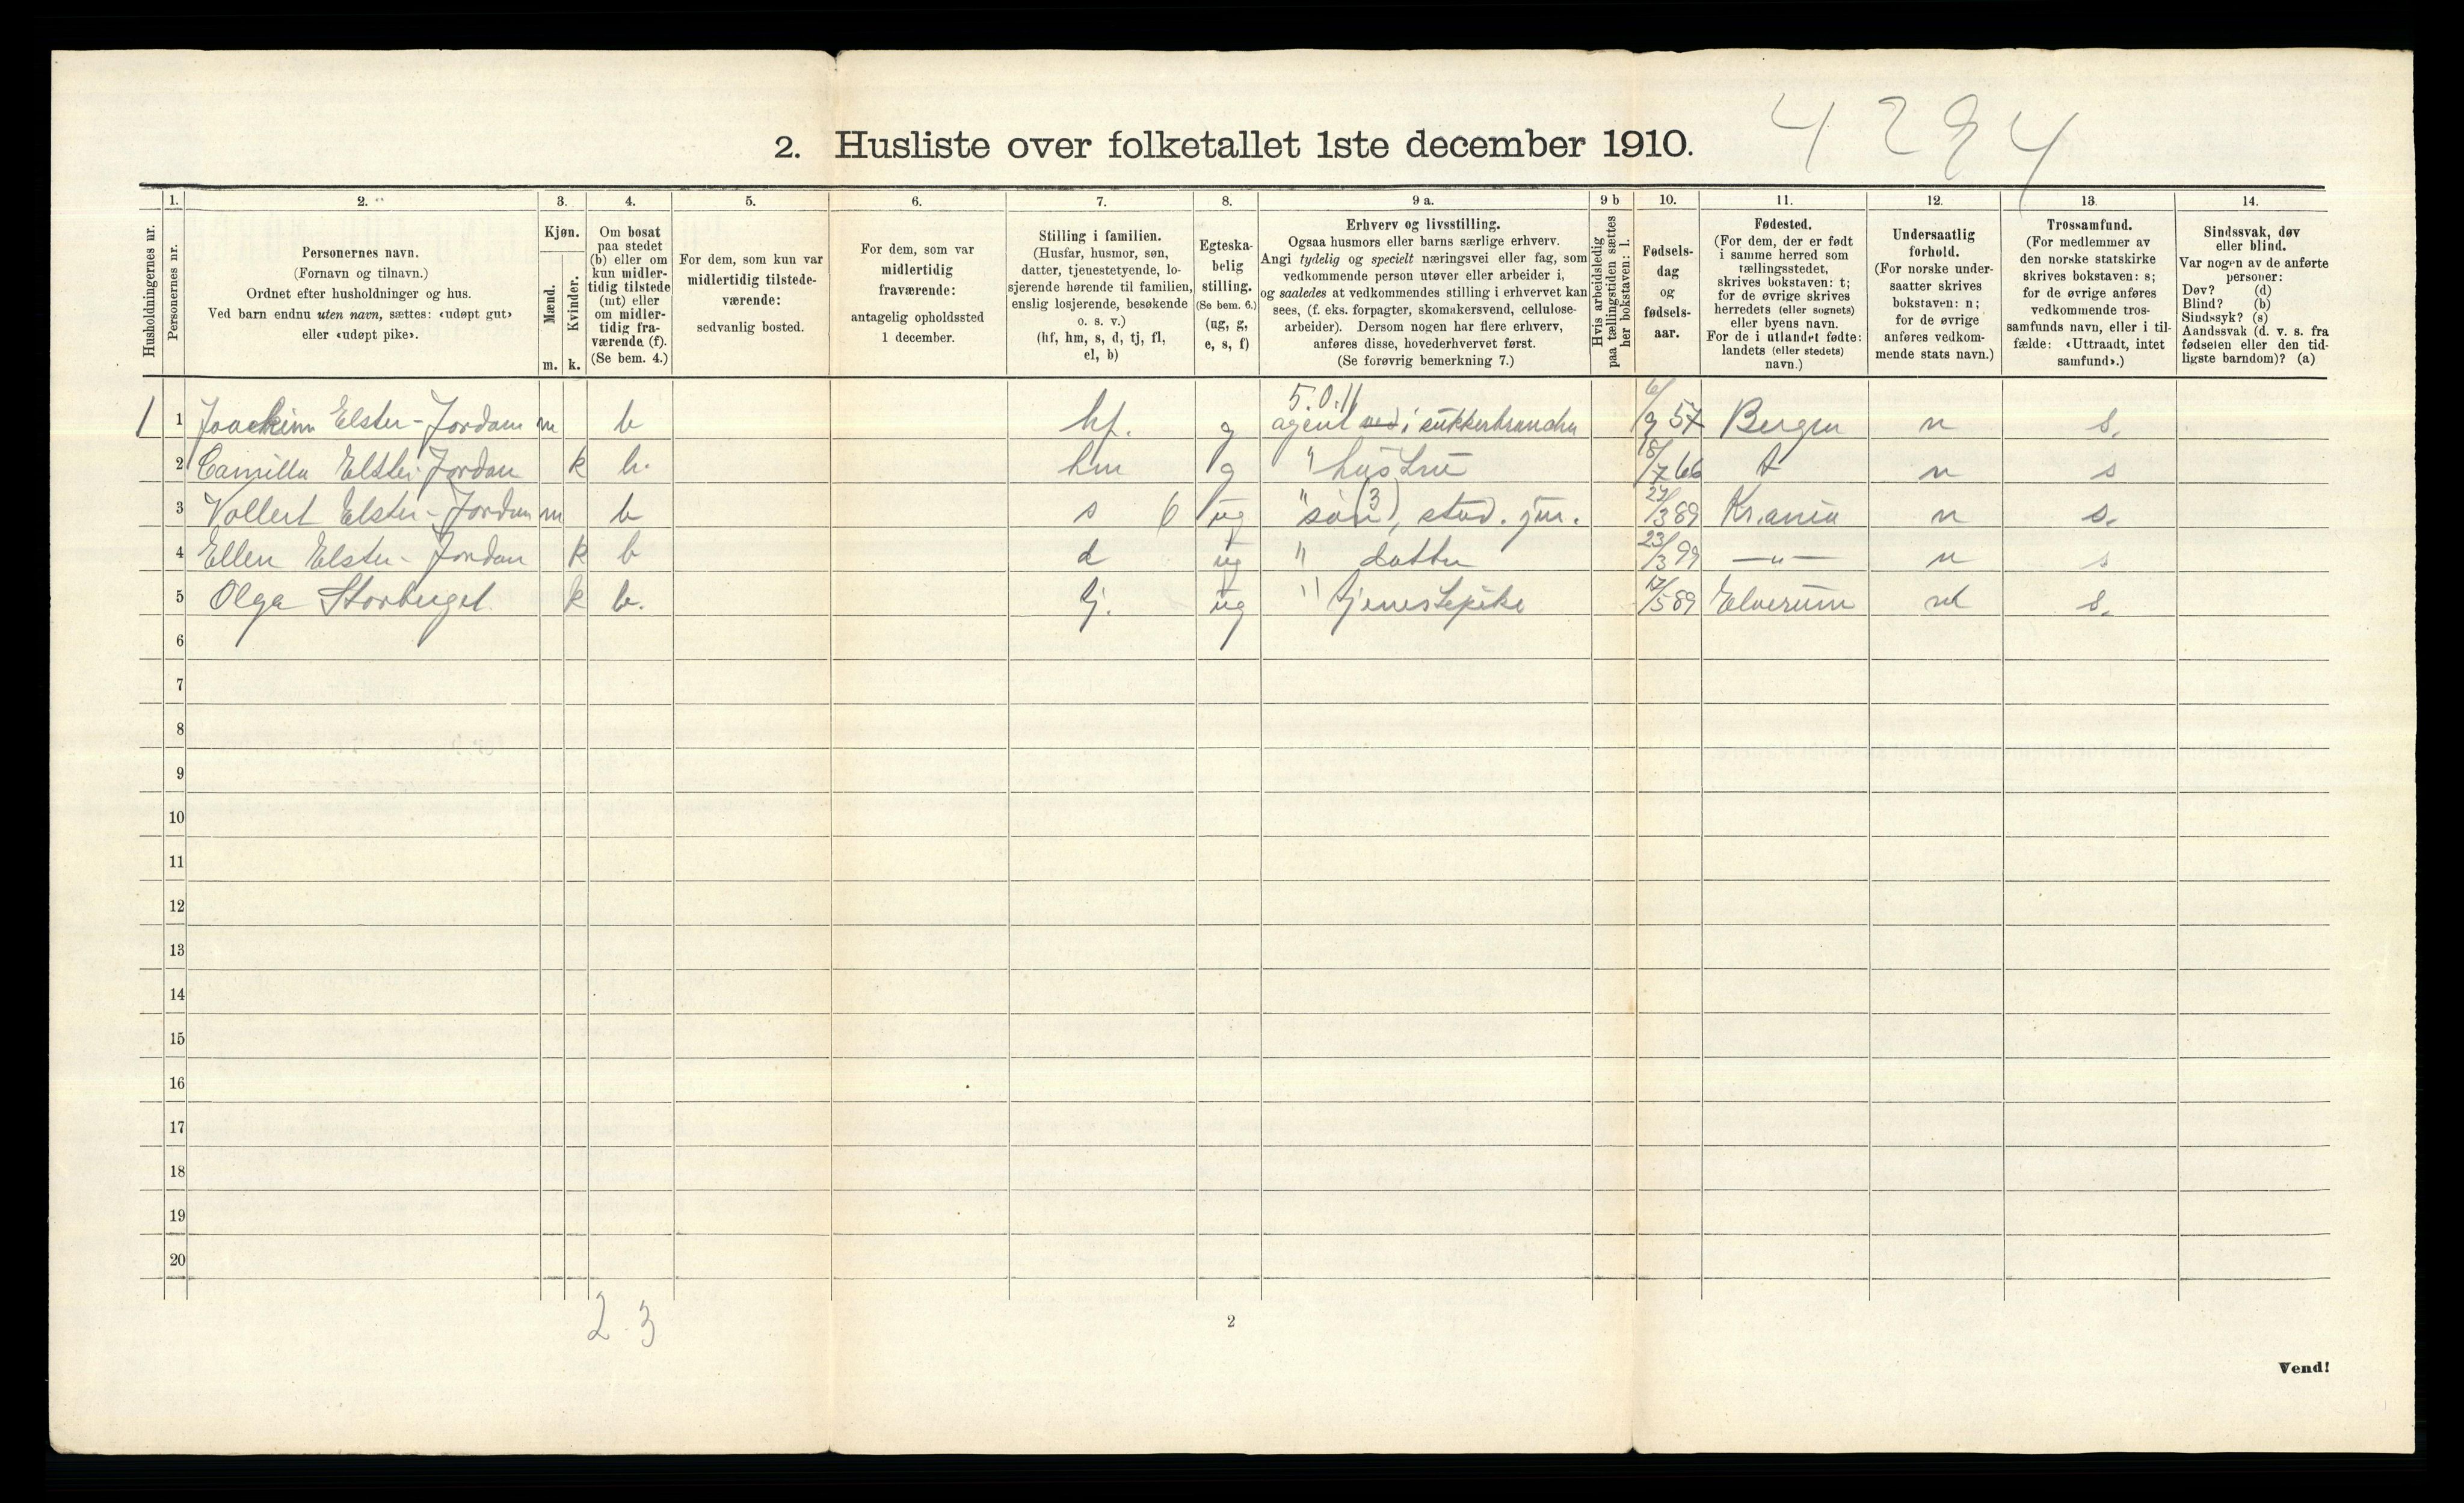 4294
2. Husliste over folketallet 1ste december 1910.
1. 2. 3. 4. 5. 6. 7. 8. 9 a. 9 b 10. 11. 12. 13. 14.
Husholdningernes nr.
Personernes nr.
Personernes navn.
(Fornavn og tilnavn.)
Ordnet efter husholdninger og hus.
Ved barn endnu uten navn, sættes: «udøpt gut»
eller «udøpt pike».
Kjøn.
Mænd.
Kvinder.
m. k.
Om bosat
paa stedet
(b) eller om
kun midler-
tidig tilstede
(mt) eller
om midler-
tidig fra-
værende (f).
(Se bem. 4.)
For dem, som kun var
midlertidig tilstede-
værende:
sedvanlig bosted.
For dem, som var
midlertidig
fraværende:
antagelig opholdssted
1 december.
Stilling i familien.
(Husfar, husmor, søn,
datter, tjenestetyende, lo-
sjerende hørende til familien,
enslig losjerende, besøkende
o. s. v.)
(hf, hm, s, d, tj, fl,
el, b)
Egteska-
belig
stilling.
(Se bem. 6.)
(ug, g,
e, s, f)
Erhverv og livsstilling.
Ogsaa husmors eller barns særlige erhverv.
Angi tydelig og specielt næringsvei eller fag, som
vedkommende person utøver eller arbeider i,
og saaledes at vedkommendes stilling i erhvervet kan
sees, (f. eks. forpagter, skomakersvend, cellulose-
arbeider). Dersom nogen har flere erhverv,
anføres disse, hovederhvervet først.
(Se forøvrig bemerkning 7.)
Hvis arbeidsledig
paa tællingstiden sættes
her bokstaven: l.
Fødsels-
dag
og
fødsels-
aar.
Fødested.
(For dem, der er født
i samme herred som
tællingsstedet,
skrives bokstaven: t;
for de øvrige skrives
herredets (eller sognets)
eller byens navn.
For de i utlandet fødte:
landets (eller stedets)
navn.)
Undersaatlig
forhold.
(For norske under-
saatter skrives
bokstaven: n;
for de øvrige
anføres vedkom-
mende stats navn.)
Trossamfund.
(For medlemmer av
den norske statskirke
skrives bokstaven: s;
for de øvrige anføres
vedkommende tros-
samfunds navn, eller i til-
fælde: «Uttraadt, intet
samfund».)
Sindssvak, døv
eller blind.
Var nogen av de anførte
personer:
Døv? (d)
Blind? (b)
Sindssyk? (s)
Aandssvak (d. v. s. fra
fødselen eller den tid-
ligste barndom)? (a)
5.0.11
1 1 Joachim Elster-Jordan m b hf. g agent ved i sukkerbranchen 6/9 57 Bergen n s.
2 Camilla Elster-Jordan k b. hm g " hustru 18/7 66 t n s
3 Vollert Elster-Jordan m b s 6 ug " søn (3), stud. jur. 27/3 89 Kr.ania n s.
4 Ellen Elster-Jordan k b d ug " datter 23/3 99 —"— n s
5 Olga Storberget k b. tj. ug " tjenestepike 17/5 89 Elverum n s.
6
7
8
9
10
11
12
13
14
15
16
17
18
19
20
2 3
2
Vend!